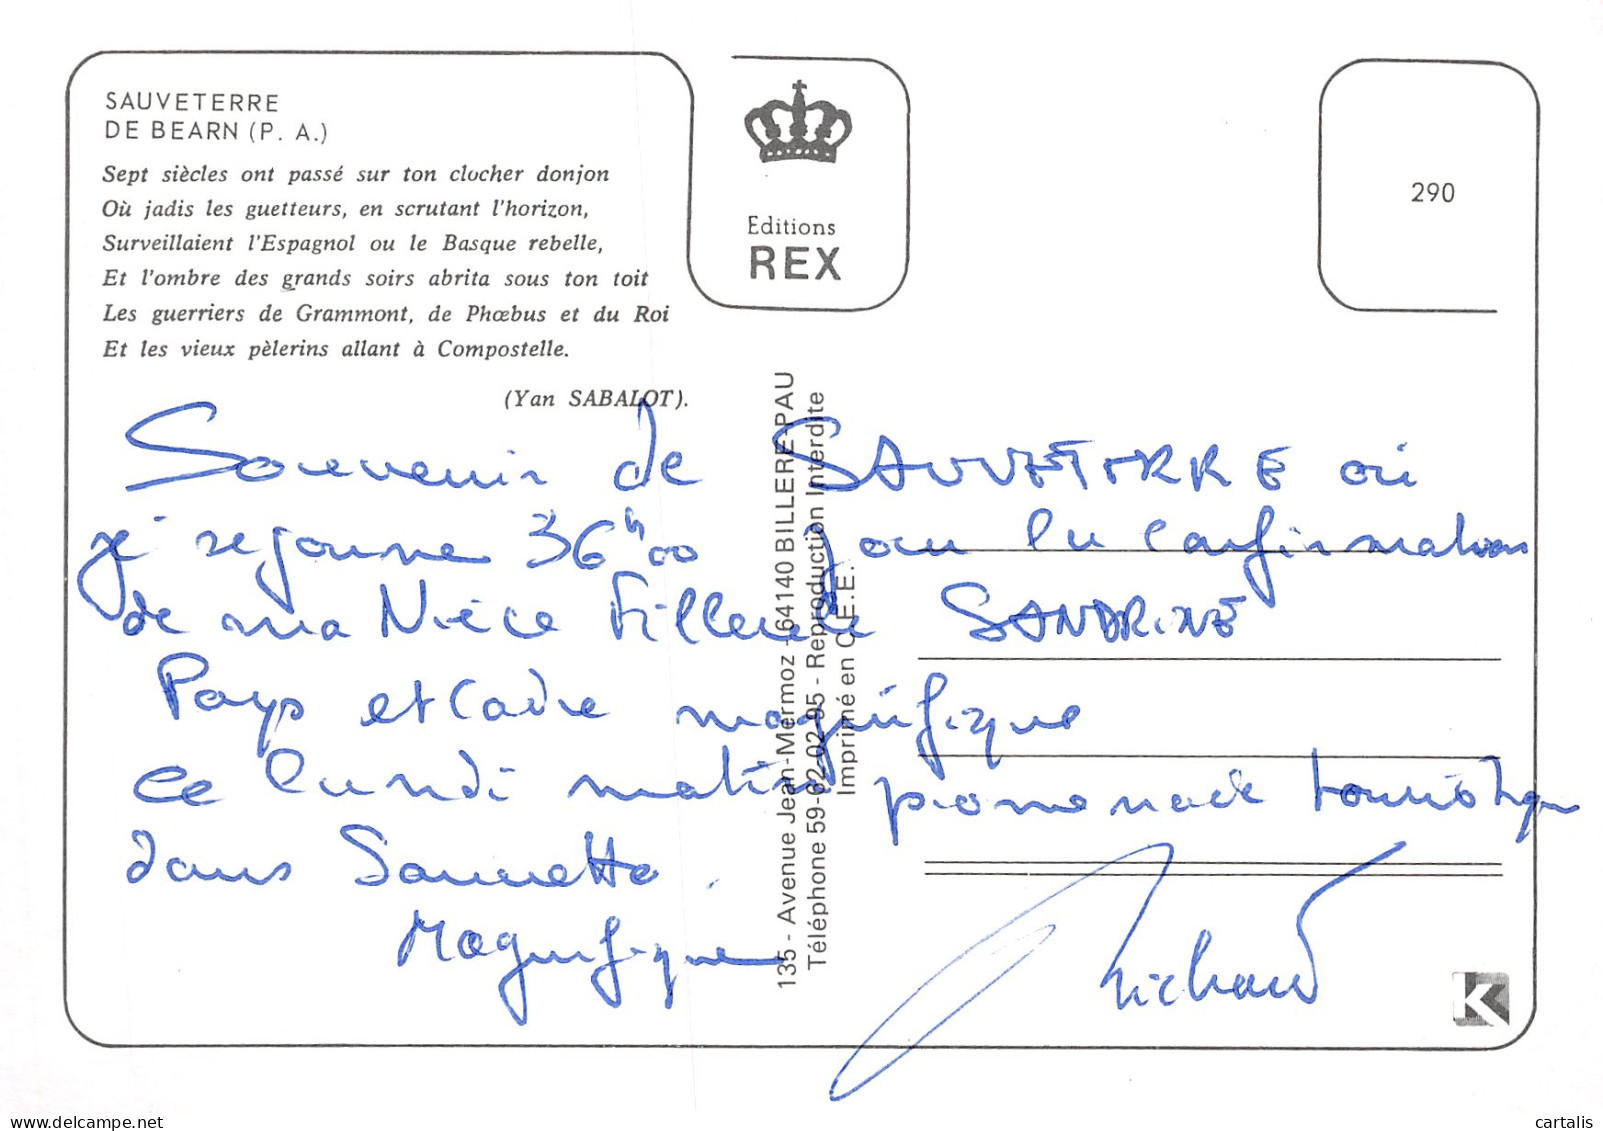 SAUVETERRE
DE BEARN (P. A.)
Sept siècles ont passé sur ton clocher donjon
Où jadis les guetteurs, en scrutant l'horizon,
Surveillaient l'Espagnol ou le Basque rebelle,
Et l'ombre des grands soirs abrita sous ton toit
Les guerriers de Grammont, de Phœbus et du Roi
Et les vieux pèlerins allant à Compostelle.
(Yan SABALOT).
Editions
REX
290
135 - Avenue Jean-Mermoz - 64140 BILLERE-PAU
Téléphone 59-62-02-95 - Reproduction Interdite
Imprimé en C.E.E.
Souvenir de SAUVETERRE où
je séjourne 36h00 pour la confirmation
de ma Nièce Filleule SANDRINE
Pays et Cadre magnifique
ce lundi matin promenade touristique
dans Sauvette.
Magnifique
Richard
K
cartalis
www.delcampe.net